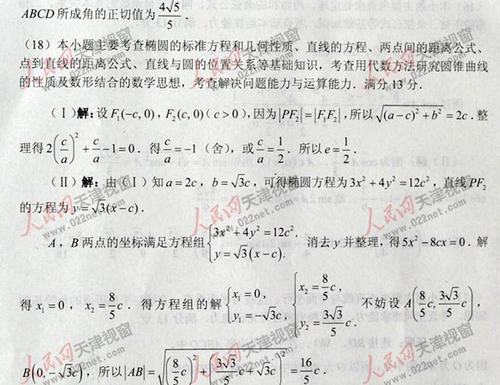 ABCD 所成角的正切值为 4√5/5.
(18) 本小题主要考查椭圆的标准方程和几何性质、直线的方程、两点间的距离公式、
点到直线的距离公式、直线与圆的位置关系等基础知识，考查用代数方法研究圆锥曲线
的性质及数形结合的数学思想，考查解决问题能力与运算能力．满分13分．
(Ⅰ)解:设 F₁(-c, 0), F₂(c, 0)(c > 0), 因为 |PF₂| = |F₁F₂|, 所以 √((a-c)² + b²) = 2c . 整
理得 2(c/a)² + c/a - 1 = 0 . 得 c/a = -1 (舍), 或 c/a = 1/2 . 所以 e = 1/2 .
(Ⅱ)解:由(Ⅰ)知 a = 2c, b = √3c, 可得椭圆方程为 3x² + 4y² = 12c², 直线 PF₂
的方程为 y = √3(x - c) .
A, B 两点的坐标满足方程组 {3x² + 4y² = 12c², y = √3(x - c). 消去 y 并整理, 得 5x² - 8cx = 0 . 解
得 x₁ = 0, x₂ = 8/5 c . 得方程组的解 {x₁ = 0, y₁ = -√3c, {x₂ = 8/5 c, y₂ = 3√3/5 c. 不妨设 A(8/5 c, 3√3/5 c),
B(0, -√3c), 所以 |AB| = √((8/5 c)² + (3√3/5 c + √3c)²) = 16/5 c .
人民网 天津视窗
www.022net.com